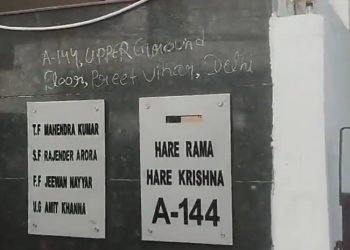 A-144, UPPER Ground
Floor, Preet Vihar, Delhi
T.F MAHENDRA KUMAR
S.F RAJENDER ARORA
F.F JEEWAN NAYYAR
U.G AMIT KHANNA
HARE RAMA
HARE KRISHNA
A-144